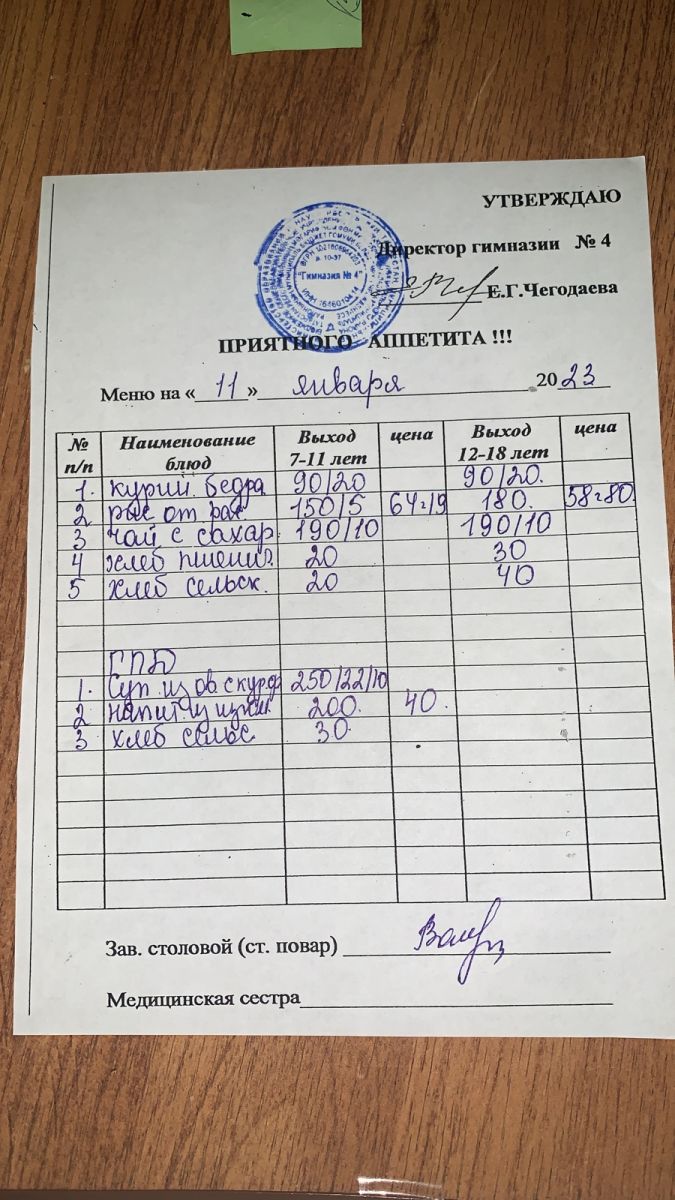 УТВЕРЖДАЮ
Директор гимназии № 4
Е.Г.Чегодаева
"Гимназия № 4"
ПРИЯТНОГО АППЕТИТА !!!
Меню на « 11 » января 2023
№ п/п Наименование блюд Выход 7-11 лет цена Выход 12-18 лет цена
1. курин. бедра 90/20 90/20.
2 рис от рас. 150/5 64=19 180. 58=80
3 чай с сахар. 190/10 190/10
4 хлеб пшенич. 20 30
5 хлеб сельск. 20 40
ГПД
1. Суп из ов с кур 250/22/10
2 напит. из 200. 40.
3 хлеб сельс. 30.
Зав. столовой (ст. повар)
Медицинская сестра